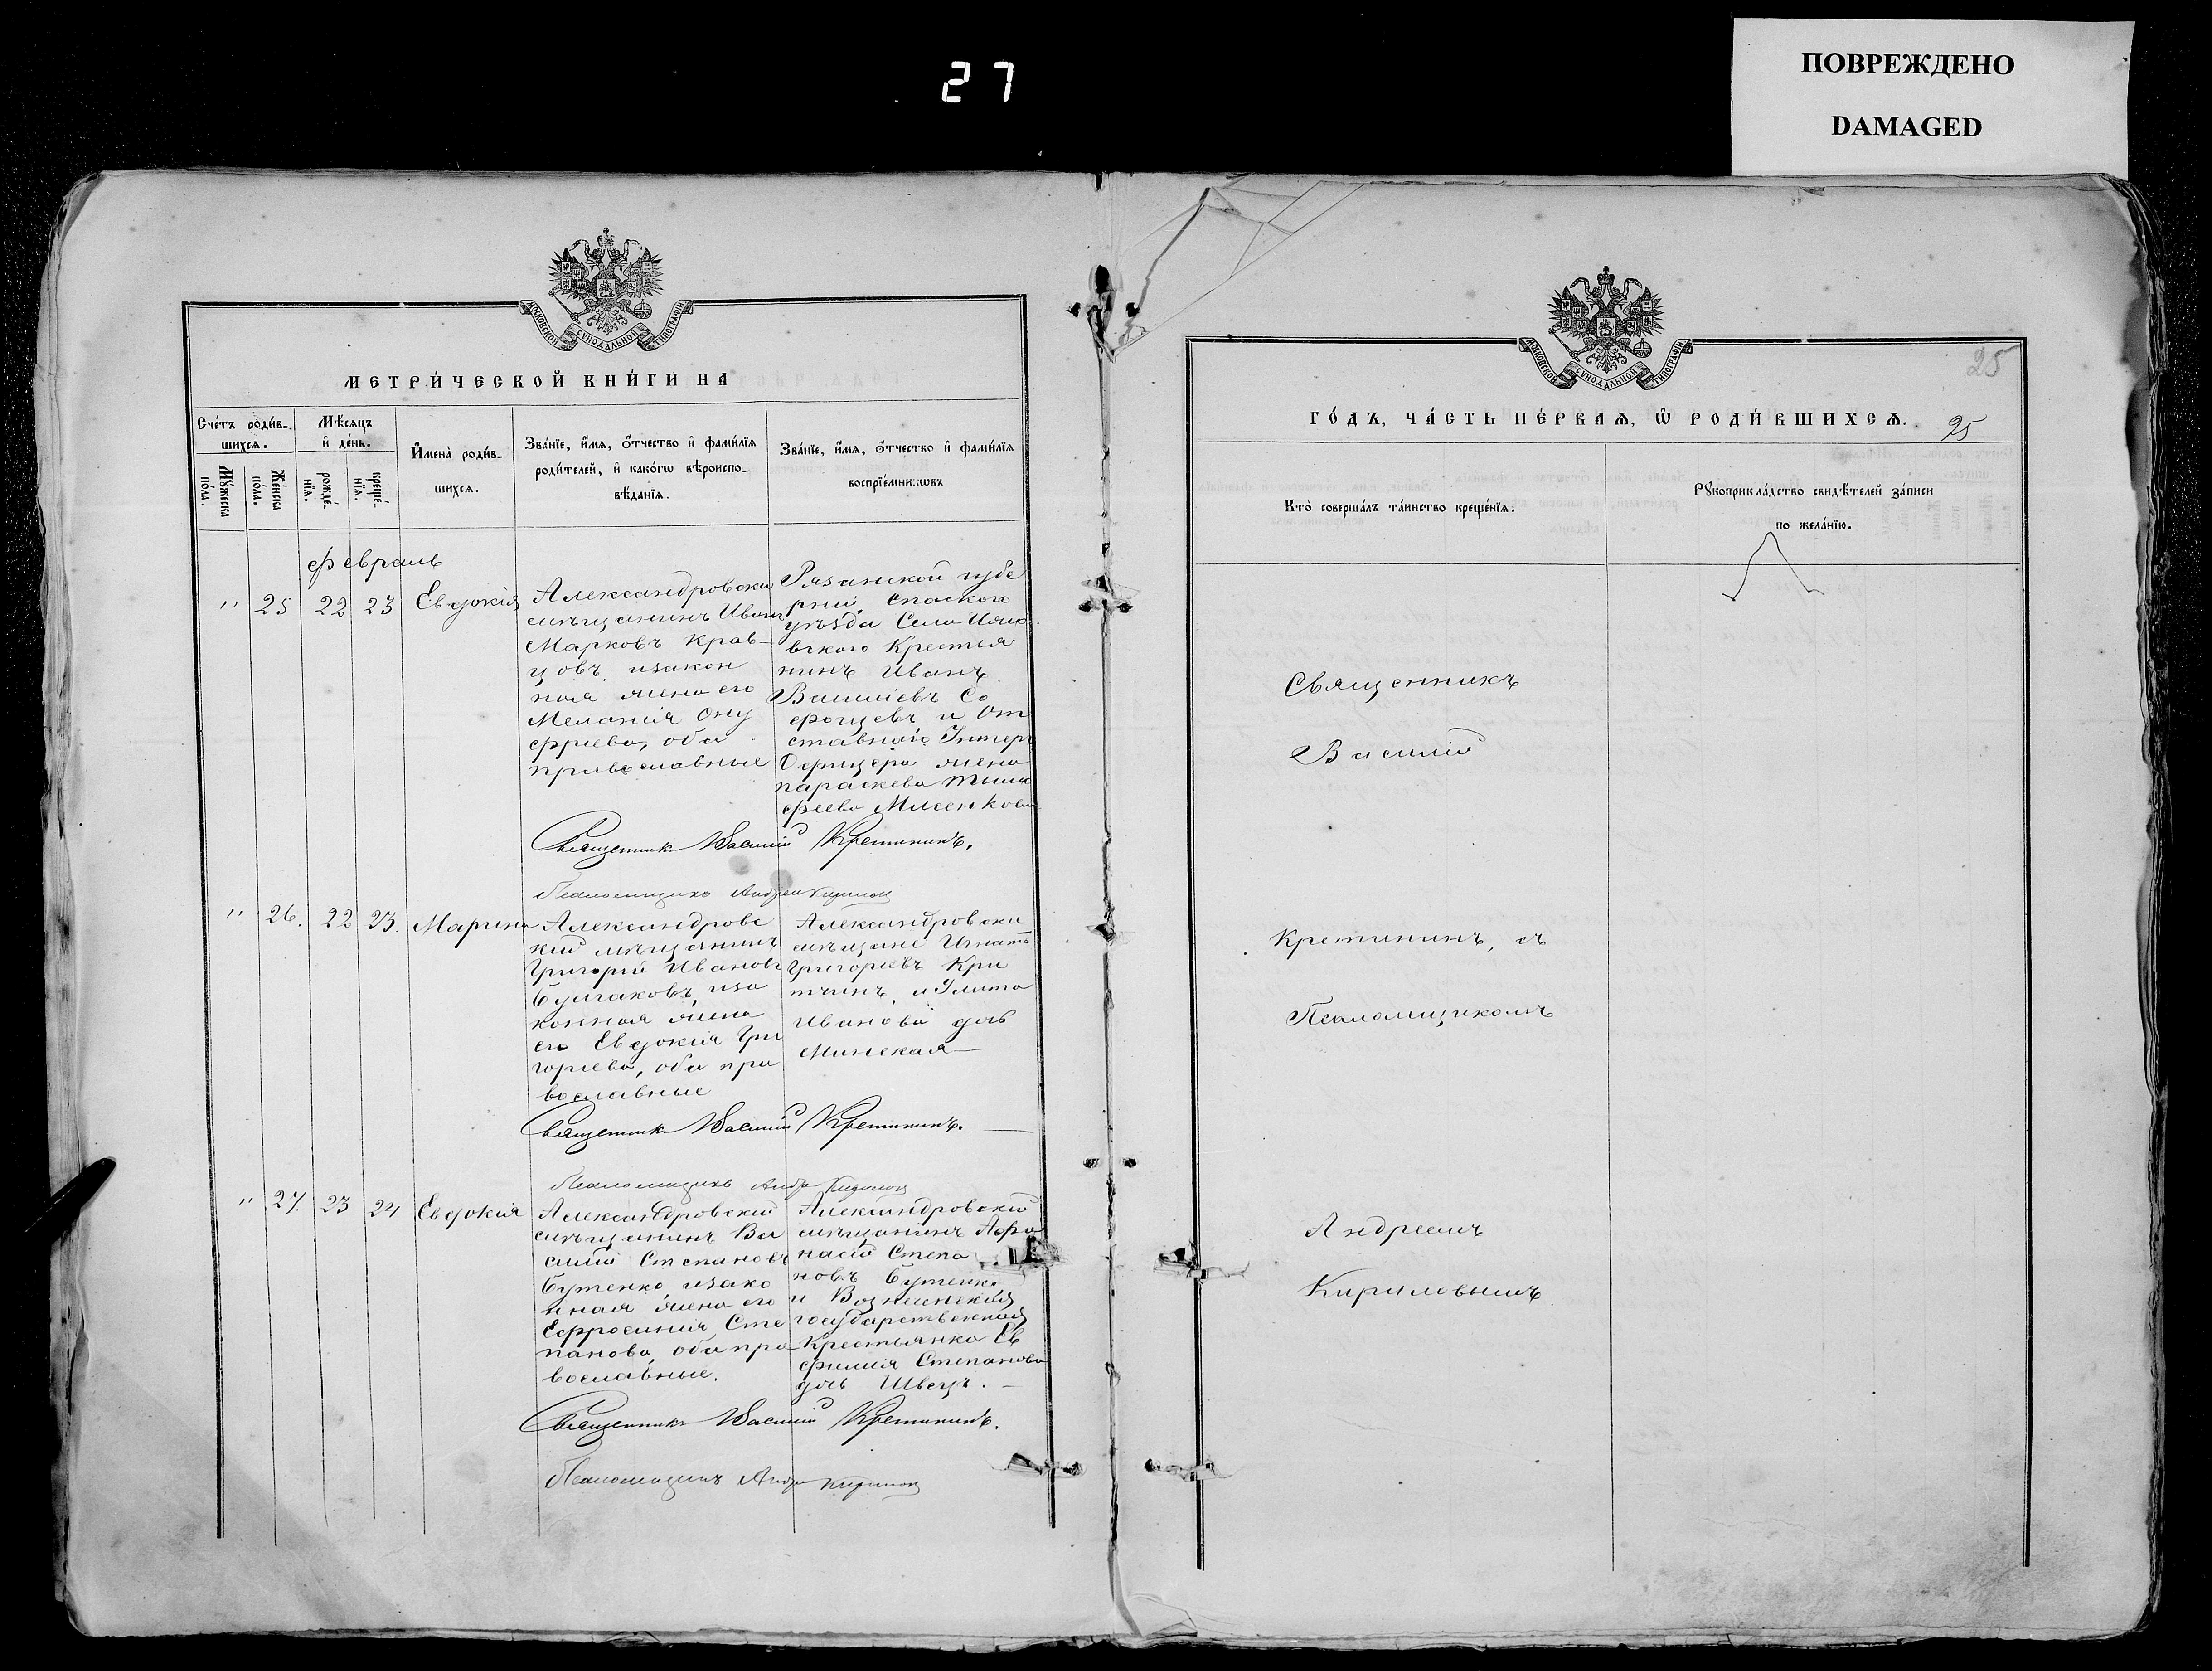 27
ПОВРЕЖДЕНО
DAMAGED
МОСКОВСКОЙ СУНОДАЛЬНОЙ ТИПОГРАФІИ
МЕТРИ́ЧЕСКОЙ КНИ́ГИ НА
Сче́тъ роди́в-
шихся.
Мѣ́сяцъ
и҆ де́нь.
И҆мена̀ роди́в-
шихся.
Зва́нїе, и҆́мя, ѻ҆́тчество и҆ фами́лїя
роди́телей, и҆ како́гѡ вѣроиспо-
вѣ́данїя.
Зва́нїе, и҆́мя, ѻ҆́тчество и҆ фами́лїя
воспрїе́мникѡвъ
Мꙋ́жеска
по́ла.
Же́нска
по́ла.
рожде́-
нїя.
креще́-
нїя.
Февраль
" 25 22 23 Евдокія
Александровски
мѣщанинъ Иван
Марковъ Крав-
цовъ, изакон
ная жена его
Меланія Ону
фріева, оба
православные
Рязанской губе
рніи, Спаского
уѣзда Села
вского Крестья
нинъ Иванъ
Со
фонцевъ и От
ставнаго Унтеръ
Офицера жена
параскева
феева
Священникъ Василій Кретининъ.
Псаломщикъ Андрей Кирилов
" 26. 22 23. Марина
Александровс
кій мѣщанинъ
Григорій Ивановъ
Булгаковъ, иза
конная жена
его Евдокія Гри
горіева, оба пра
вославные
Александровски
мѣщане Игнатъ
Григорьевъ Кри
тчинъ, и Улита
Иванова дочь
Минская—
Священникъ Василій Кретининъ. —
Псаломщикъ Андр Кирилов
" 27. 23 24 Евдокія
Александровскій
мѣщанинъ Ва
силій Степановъ
Бутенко, изако
нная жена его
Ефросинія Сте
панова, оба пра
вославные.
Александровскій
мѣщанинъ Афа
насій Степа
новъ Бутенко
и Вознесенская
государственная
Крестьянка Ев
фимія Степанова
дочь Швецъ. —
Священникъ Василій Кретининъ.
Псаломщикъ Андр Кирилов
МОСКОВСКОЙ СУНОДАЛЬНОЙ ТИПОГРАФІИ
25
ГО́ДЪ, ЧА́СТЬ ПЕ́РВАЯ, Ѡ҆ РОДИ́ВШИХСЯ. 25
Кто̀ соверша́лъ та́инство креще́нїя.
Рꙋкоприкла́дство свидѣ́телей за́писи
по жела́нїю.
Священникъ
Василій
Кретининъ, съ
Псаломщикомъ
Андреемъ
Кириловымъ